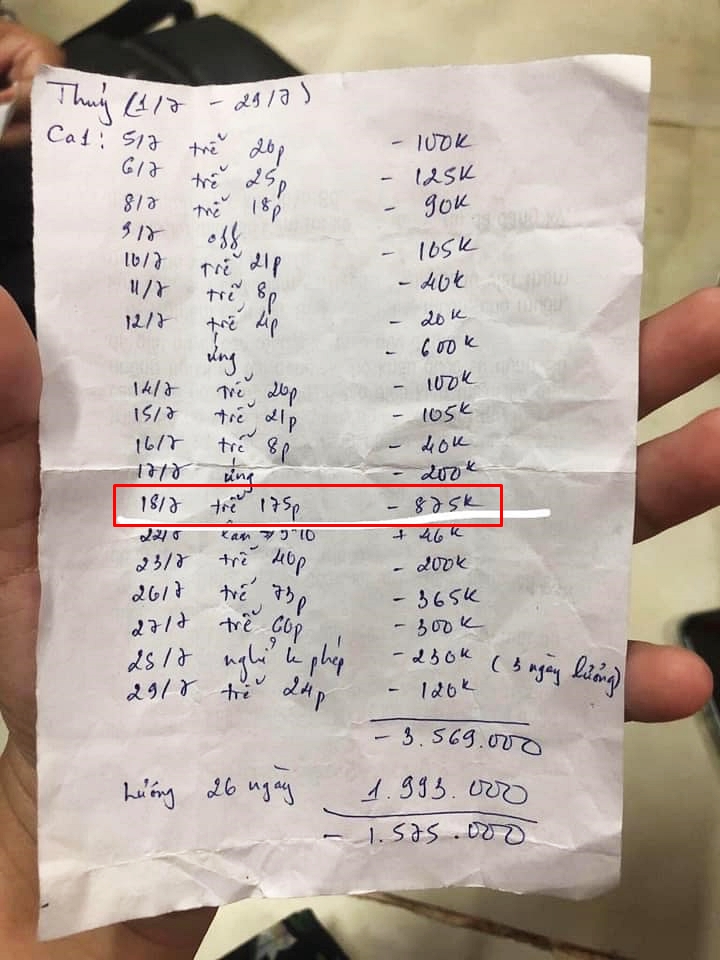 Thúy (1/7 - 29/7)
Ca1: 5/7 trễ 20p - 100K
6/7 trễ 25p - 125K
8/7 trễ 18p - 90K
9/7 off
10/7 trễ 21p - 105K
11/7 trễ 8p - 40K
12/7 trễ 4p - 20K
ứng - 600K
14/7 trễ 20p - 100K
15/7 trễ 21p - 105K
16/7 trễ 8p - 40K
17/7 ứng - 200K
18/7 trễ 175p - 875K
+ 46K
23/7 trễ 40p - 200K
26/7 trễ 73p - 365K
27/7 trễ 60p - 300K
28/7 nghỉ k phép - 230K (3 ngày lương)
29/7 trễ 24p - 120K
- 3.569.000
Lương 26 ngày 1.993.000
- 1.575.000